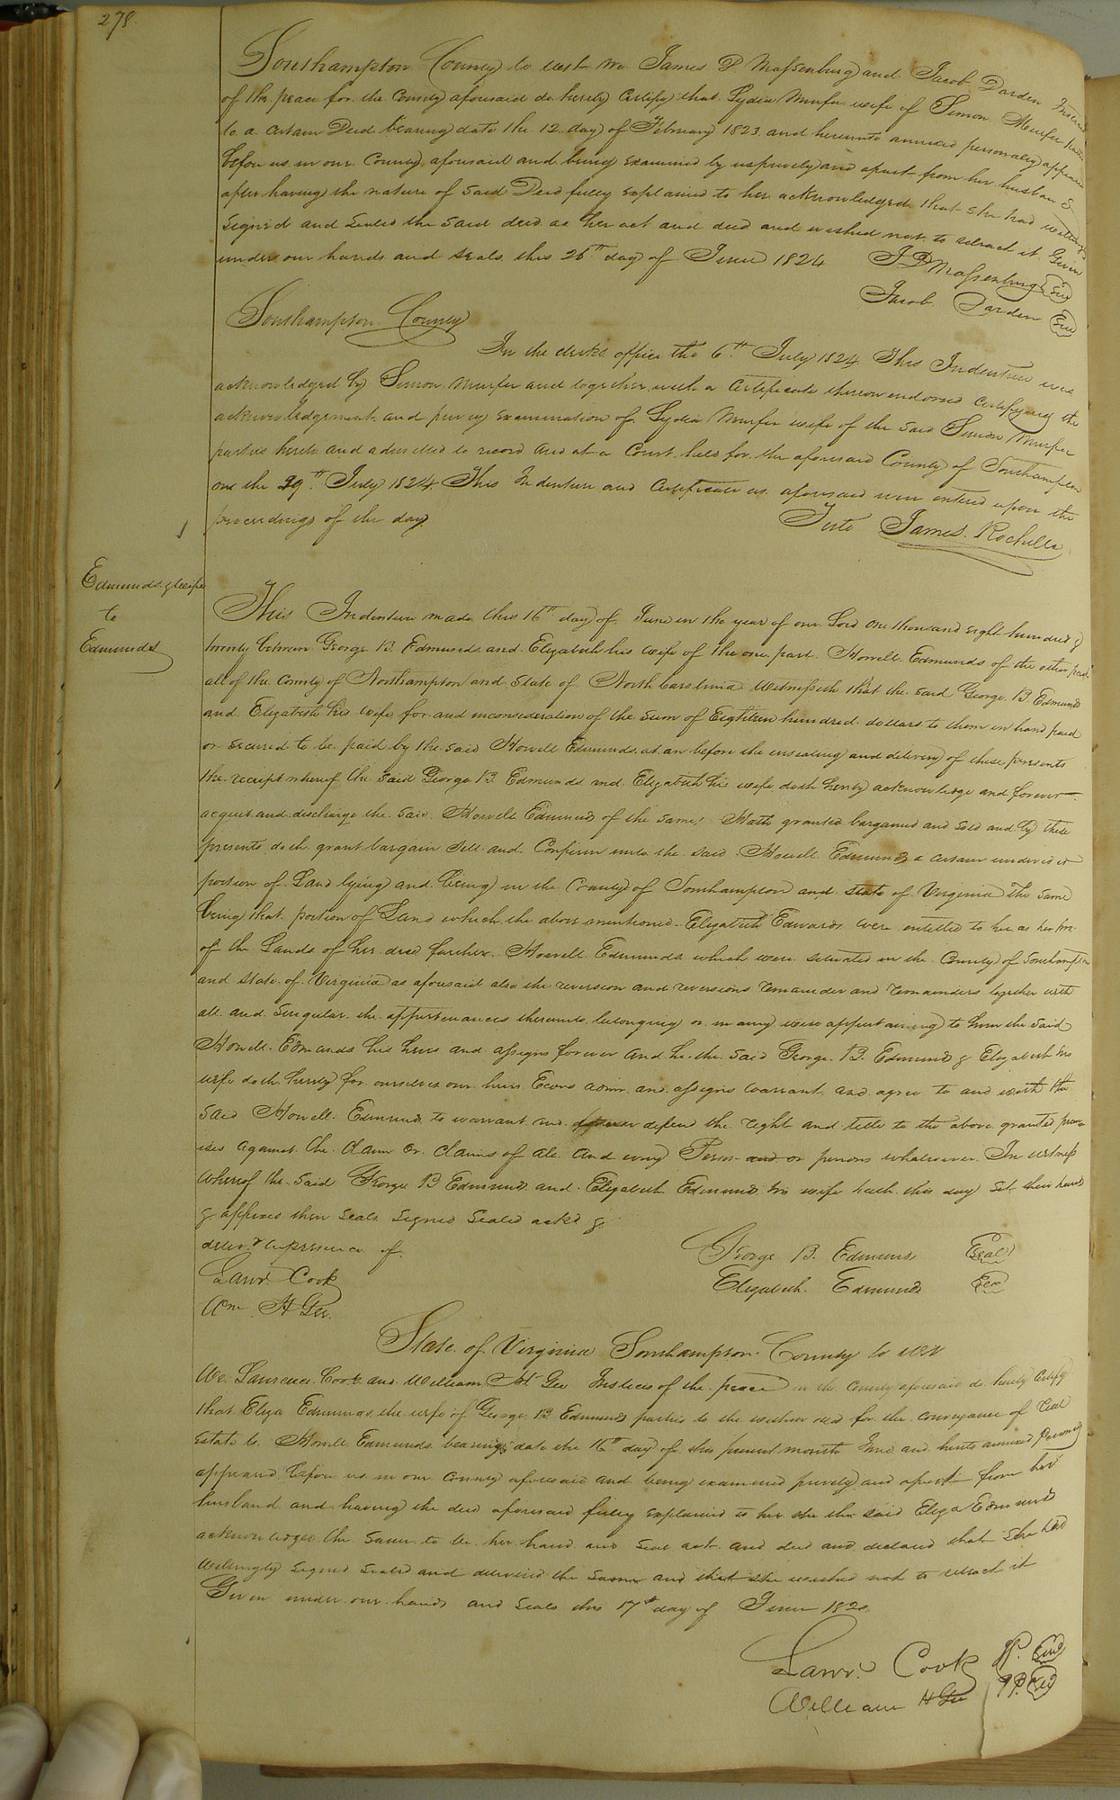 278
Southampton County to wit We James P Massenburg and Jacob Darden Justices
of the peace for the County aforesaid do hereby Certify that Lydia Murfee wife of Simon Murfee
to a Certain Deed bearing date the 12 day of February 1823 and hereunto annexed personally appeared
before us in our County aforesaid and being examined by us privily and apart from her husband &
after having the nature of said Deed fully explained to her acknowledged that she had willingly
signed and sealed the said deed as her act and deed and wished not to retract it Given
under our hands and seals this 26th day of June 1824 J P Massenburg Seal
Jacob Darden Seal
Southampton County
In the clerks office the 6th July 1824 This Indenture was
acknowledged by Simon Murfee and together with a Certificate thereon endorsed Certifying the
acknowledgement and privy examination of Lydia Murfee wife of the said Simon Murfee
parties hereto and admitted to record and at a Court held for the aforesaid County of Southampton
on the 29th July 1824 This Indenture and Certificate as aforesaid were entered upon the
proceedings of the day
Teste James Rochelle
Edmunds & wife
to
Edmunds
This Indenture made this 16th day of June in the year of our Lord one thousand eight hundred &
twenty between George B. Edmunds and Elizabeth his wife of the one part Howell Edmunds of the other part
all of the County of Northampton and State of North Carolina Witnesseth that the said George B Edmunds
and Elizabeth his wife for and inconsideration of the sum of Eighteen hundred dollars to them in hand paid
or secured to be paid by the said Howell Edmunds at an before the ensealing and delivery of these presents
the receipt whereof the said George B Edmunds and Elizabeth his wife doth hereby acknowledge and forever
acquit and discharge the said Howell Edmunds of the same Hath granted bargained and sold and by these
presents doth grant bargain sell and Confirm unto the said Howell Edmunds a certain undivided
portion of Land lying and being in the County of Southampton and state of Virginia the same
being that portion of Land which the above mentioned Elizabeth Edwards were entitled to her as
of the Lands of her decd farther Howell Edmunds which were situated in the County of Southampton
and state of Virginia as aforesaid also the reversion and reversions remainder and remainders together with
all and singular the appurtenances thereunto belonging or in any wise appertaining to him the said
Howell Edmunds his heirs and assigns forever And he the said George B. Edmunds & Elizabeth his
wife doth hereby for ourselves our heirs Exors admr and assigns warrant and agree to and with the
said Howell Edmunds to warrant and defend the right and title to the above granted prem
ises against the Claim or Claims of all and every Person and or persons whatsoever In witness
whereof the said George B Edmunds and Elizabeth Edmunds his wife hath this day set their hands
& affixed their seals signed sealed ackd &
deliv.d in presence of
George B. Edmunds Seal
Elizabeth Edmunds Seal
Lawr. Cook
Wm H Gee
State of Virginia Southampton County to wit
We Laurence Cook and William H Gee Justices of the peace in the County aforesaid do hereby Certify
that Eliza Edmunds the wife of George B Edmunds parties to the within deed for the conveyance of real
Estate to Howell Edmunds bearing date the 16th day of this present month June and hereto annexed personally
appeared before us in our County aforesaid and being examined privily and apart from her
husband and having the deed aforesaid fully explained to her she the said Eliza Edmunds
acknowledged the same to be her hand and seal act and deed and declared that she had
willingly signed sealed and delivered the same and that she wished not to retract it
Given under our hands and seals this 17th day of June 1820
Lawr. Cook JP. Seal
William H Gee J.P. Seal